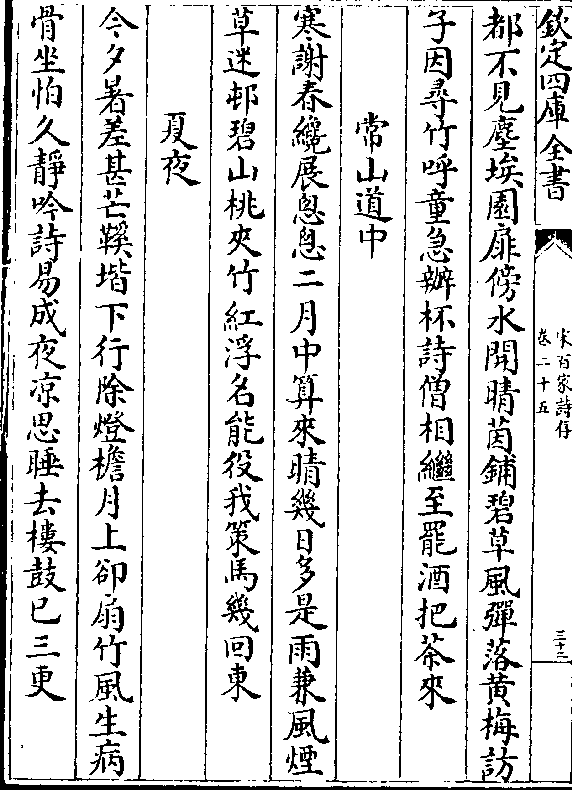 欽定四庫全書
宋百家詩存
卷二十五
三十三
都不見塵埃園扉傍水開晴茵鋪碧草風彈落黄梅訪
子因尋竹呼童急辦杯詩僧相繼至罷酒把茶來
常山道中
寒謝春纔展怱怱二月中算來晴幾日多是雨兼風煙
草迷邨碧山桃夾竹紅浮名能役我策馬幾回東
夏夜
今夕暑差甚芒鞵堦下行除燈檐月上卻扇竹風生病
骨坐怕久靜吟詩易成夜凉思睡去樓鼓已三更